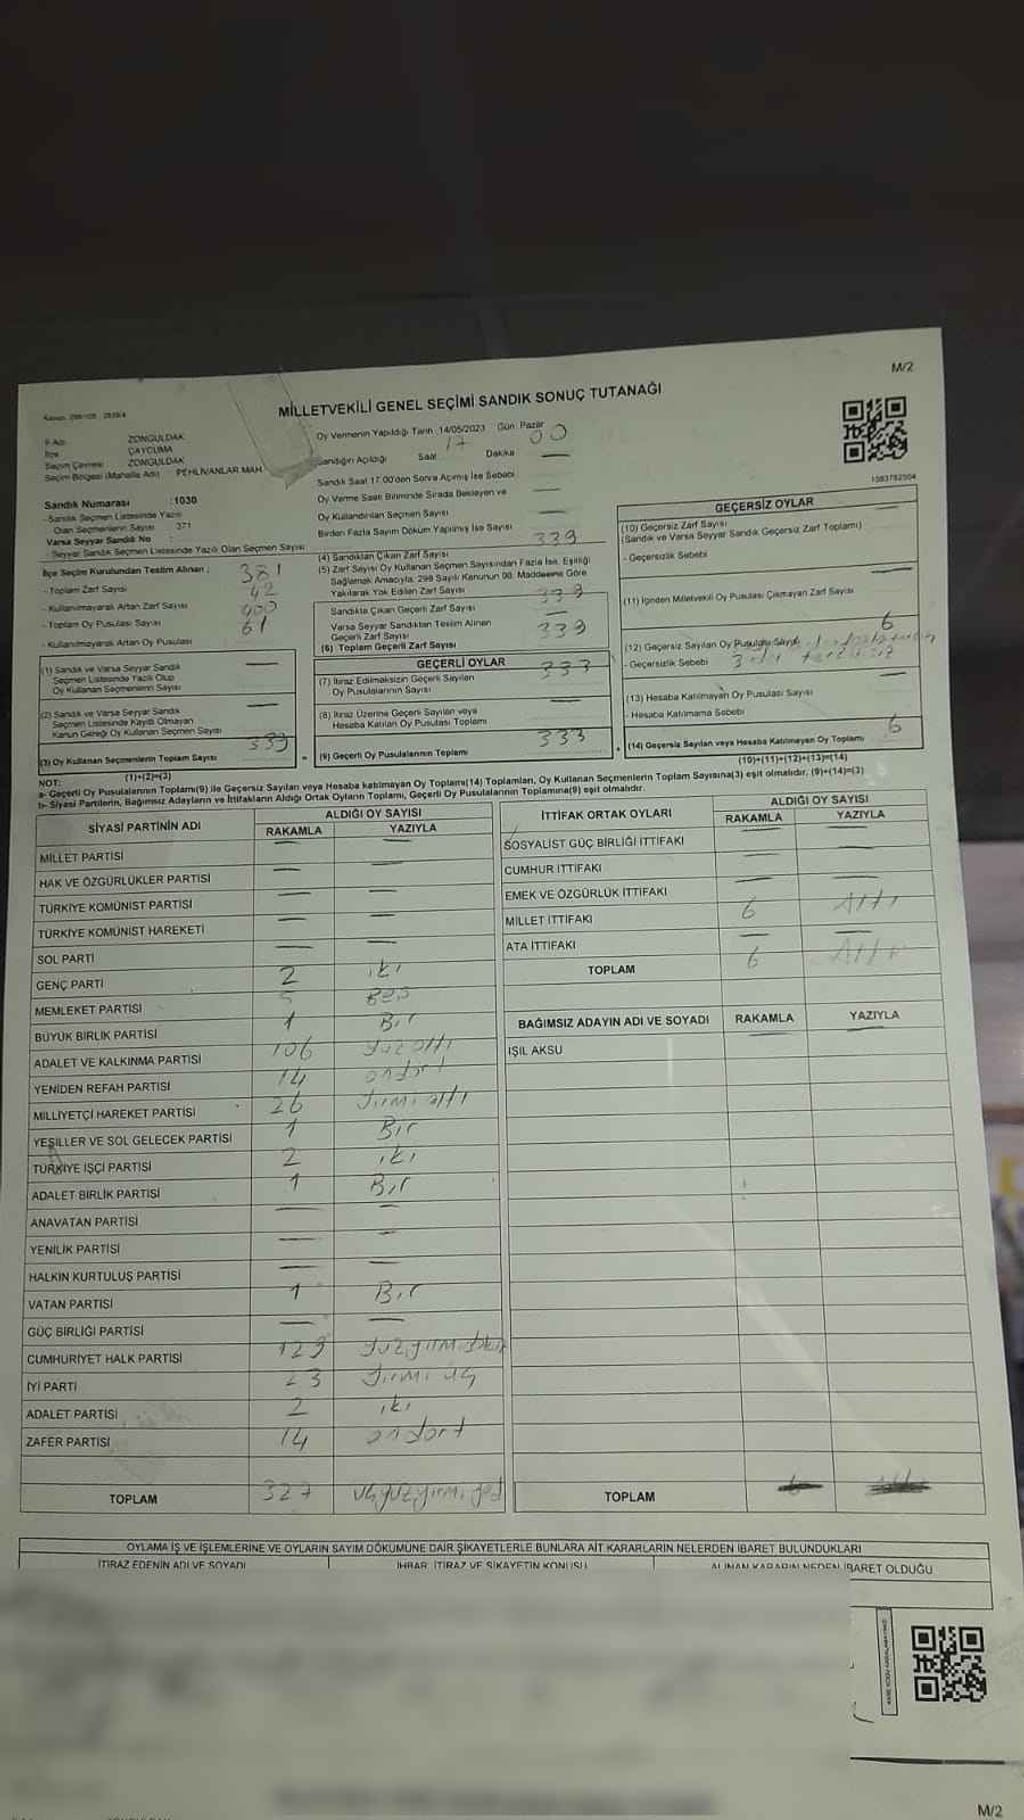 M/2
MİLLETVEKİLİ GENEL SEÇİMİ SANDIK SONUÇ TUTANAĞI
İl Adı ZONGULDAK
İlçe ÇAYCUMA
Seçim Çevresi ZONGULDAK
Seçim Bölgesi (Mahalle Adı) PEHLİVANLAR MAH
Oy Vermenin Yapıldığı Tarih 14/05/2023 Gün Pazar
Sandığın Açıldığı Saat 17 Dakika 00
Sandık Saat 17.00'den Sonra Açılmış İse Sebebi —
Oy Verme Saati Bitiminde Sırada Bekleyen ve
Oy Kullandırılan Seçmen Sayısı —
Birden Fazla Sayım Döküm Yapılmış İse Sayısı —
1583782504
Sandık Numarası : 1030
- Sandık Seçmen Listesinde Yazılı
Olan Seçmenlerin Sayısı 371
Varsa Seyyar Sandık No :
- Seyyar Sandık Seçmen Listesinde Yazılı Olan Seçmen Sayısı
İlçe Seçim Kurulundan Teslim Alınan :
- Toplam Zarf Sayısı 381
- Kullanılmayarak Artan Zarf Sayısı 42
- Toplam Oy Pusulası Sayısı 400
- Kullanılmayarak Artan Oy Pusulası 61
(1) Sandık ve Varsa Seyyar Sandık
Seçmen Listesinde Yazılı Olup
Oy Kullanan Seçmenlerin Sayısı —
(2) Sandık ve Varsa Seyyar Sandık
Seçmen Listesinde Kayıtlı Olmayan
Kanun Gereği Oy Kullanan Seçmen Sayısı —
(3) Oy Kullanan Seçmenlerin Toplam Sayısı 339
(1)+(2)=(3)
(4) Sandıktan Çıkan Zarf Sayısı 339
(5) Zarf Sayısı Oy Kullanan Seçmen Sayısından Fazla İse, Eşitliği
Sağlamak Amacıyla, 298 Sayılı Kanunun 98. Maddesine Göre
Yakılarak Yok Edilen Zarf Sayısı
Sandıkta Çıkan Geçerli Zarf Sayısı 339
Varsa Seyyar Sandıktan Teslim Alınan
Geçerli Zarf Sayısı —
(6) Toplam Geçerli Zarf Sayısı 339
GEÇERLİ OYLAR
(7) İtiraz Edilmeksizin Geçerli Sayılan
Oy Pusulalarının Sayısı 333
(8) İtiraz Üzerine Geçerli Sayılan veya
Hesaba Katılan Oy Pusulası Toplamı —
(9) Geçerli Oy Pusulalarının Toplamı 333
GEÇERSİZ OYLAR
(10) Geçersiz Zarf Sayısı
(Sandık ve Varsa Seyyar Sandık Geçersiz Zarf Toplamı) —
- Geçersizlik Sebebi
(11) İçinden Milletvekili Oy Pusulası Çıkmayan Zarf Sayısı —
(12) Geçersiz Sayılan Oy Pusulası Sayısı 6
- Geçersizlik Sebebi
(13) Hesaba Katılmayan Oy Pusulası Sayısı —
- Hesaba Katılmama Sebebi
(14) Geçersiz Sayılan veya Hesaba Katılmayan Oy Toplamı 6
(10)+(11)+(12)+(13)=(14)
NOT:
a- Geçerli Oy Pusulalarının Toplamı(9) ile Geçersiz Sayılan veya Hesaba katılmayan Oy Toplamı(14) Toplamları, Oy Kullanan Seçmenlerin Toplam Sayısına(3) eşit olmalıdır, (9)+(14)=(3)
b- Siyasi Partilerin, Bağımsız Adayların ve İttifakların Aldığı Ortak Oyların Toplamı, Geçerli Oy Pusulalarının Toplamına(9) eşit olmalıdır.
SİYASİ PARTİNİN ADI ALDIĞI OY SAYISI
RAKAMLA YAZIYLA
MİLLET PARTİSİ — —
HAK VE ÖZGÜRLÜKLER PARTİSİ — —
TÜRKİYE KOMÜNİST PARTİSİ — —
TÜRKİYE KOMÜNİST HAREKETİ — —
SOL PARTİ — —
GENÇ PARTİ 2 iki
MEMLEKET PARTİSİ 5 Beş
BÜYÜK BİRLİK PARTİSİ 1 Bir
ADALET VE KALKINMA PARTİSİ 106 yüz altı
YENİDEN REFAH PARTİSİ 14 ondört
MİLLİYETÇİ HAREKET PARTİSİ 26 yirmi altı
YEŞİLLER VE SOL GELECEK PARTİSİ 1 Bir
TÜRKİYE İŞÇİ PARTİSİ 2 iki
ADALET BİRLİK PARTİSİ 1 Bir
ANAVATAN PARTİSİ — —
YENİLİK PARTİSİ — —
HALKIN KURTULUŞ PARTİSİ — —
VATAN PARTİSİ 1 Bir
GÜÇ BİRLİĞİ PARTİSİ — —
CUMHURİYET HALK PARTİSİ 129
İYİ PARTİ 23 yirmi üç
ADALET PARTİSİ 2 iki
ZAFER PARTİSİ 14 ondört
TOPLAM 327
İTTİFAK ORTAK OYLARI ALDIĞI OY SAYISI
RAKAMLA YAZIYLA
SOSYALİST GÜÇ BİRLİĞİ İTTİFAKI — —
CUMHUR İTTİFAKI — —
EMEK VE ÖZGÜRLÜK İTTİFAKI — —
MİLLET İTTİFAKI 6 Altı
ATA İTTİFAKI — —
TOPLAM 6 Altı
BAĞIMSIZ ADAYIN ADI VE SOYADI RAKAMLA YAZIYLA
IŞIL AKSU — —
TOPLAM
OYLAMA İŞ VE İŞLEMLERİNE VE OYLARIN SAYIM DÖKÜMÜNE DAİR ŞİKAYETLERLE BUNLARA AİT KARARLARIN NELERDEN İBARET BULUNDUKLARI
İTİRAZ EDENİN ADI VE SOYADI İHBAR, İTİRAZ VE ŞİKAYETİN KONUSU ALINAN KARARIN NEDEN İBARET OLDUĞU
M/2